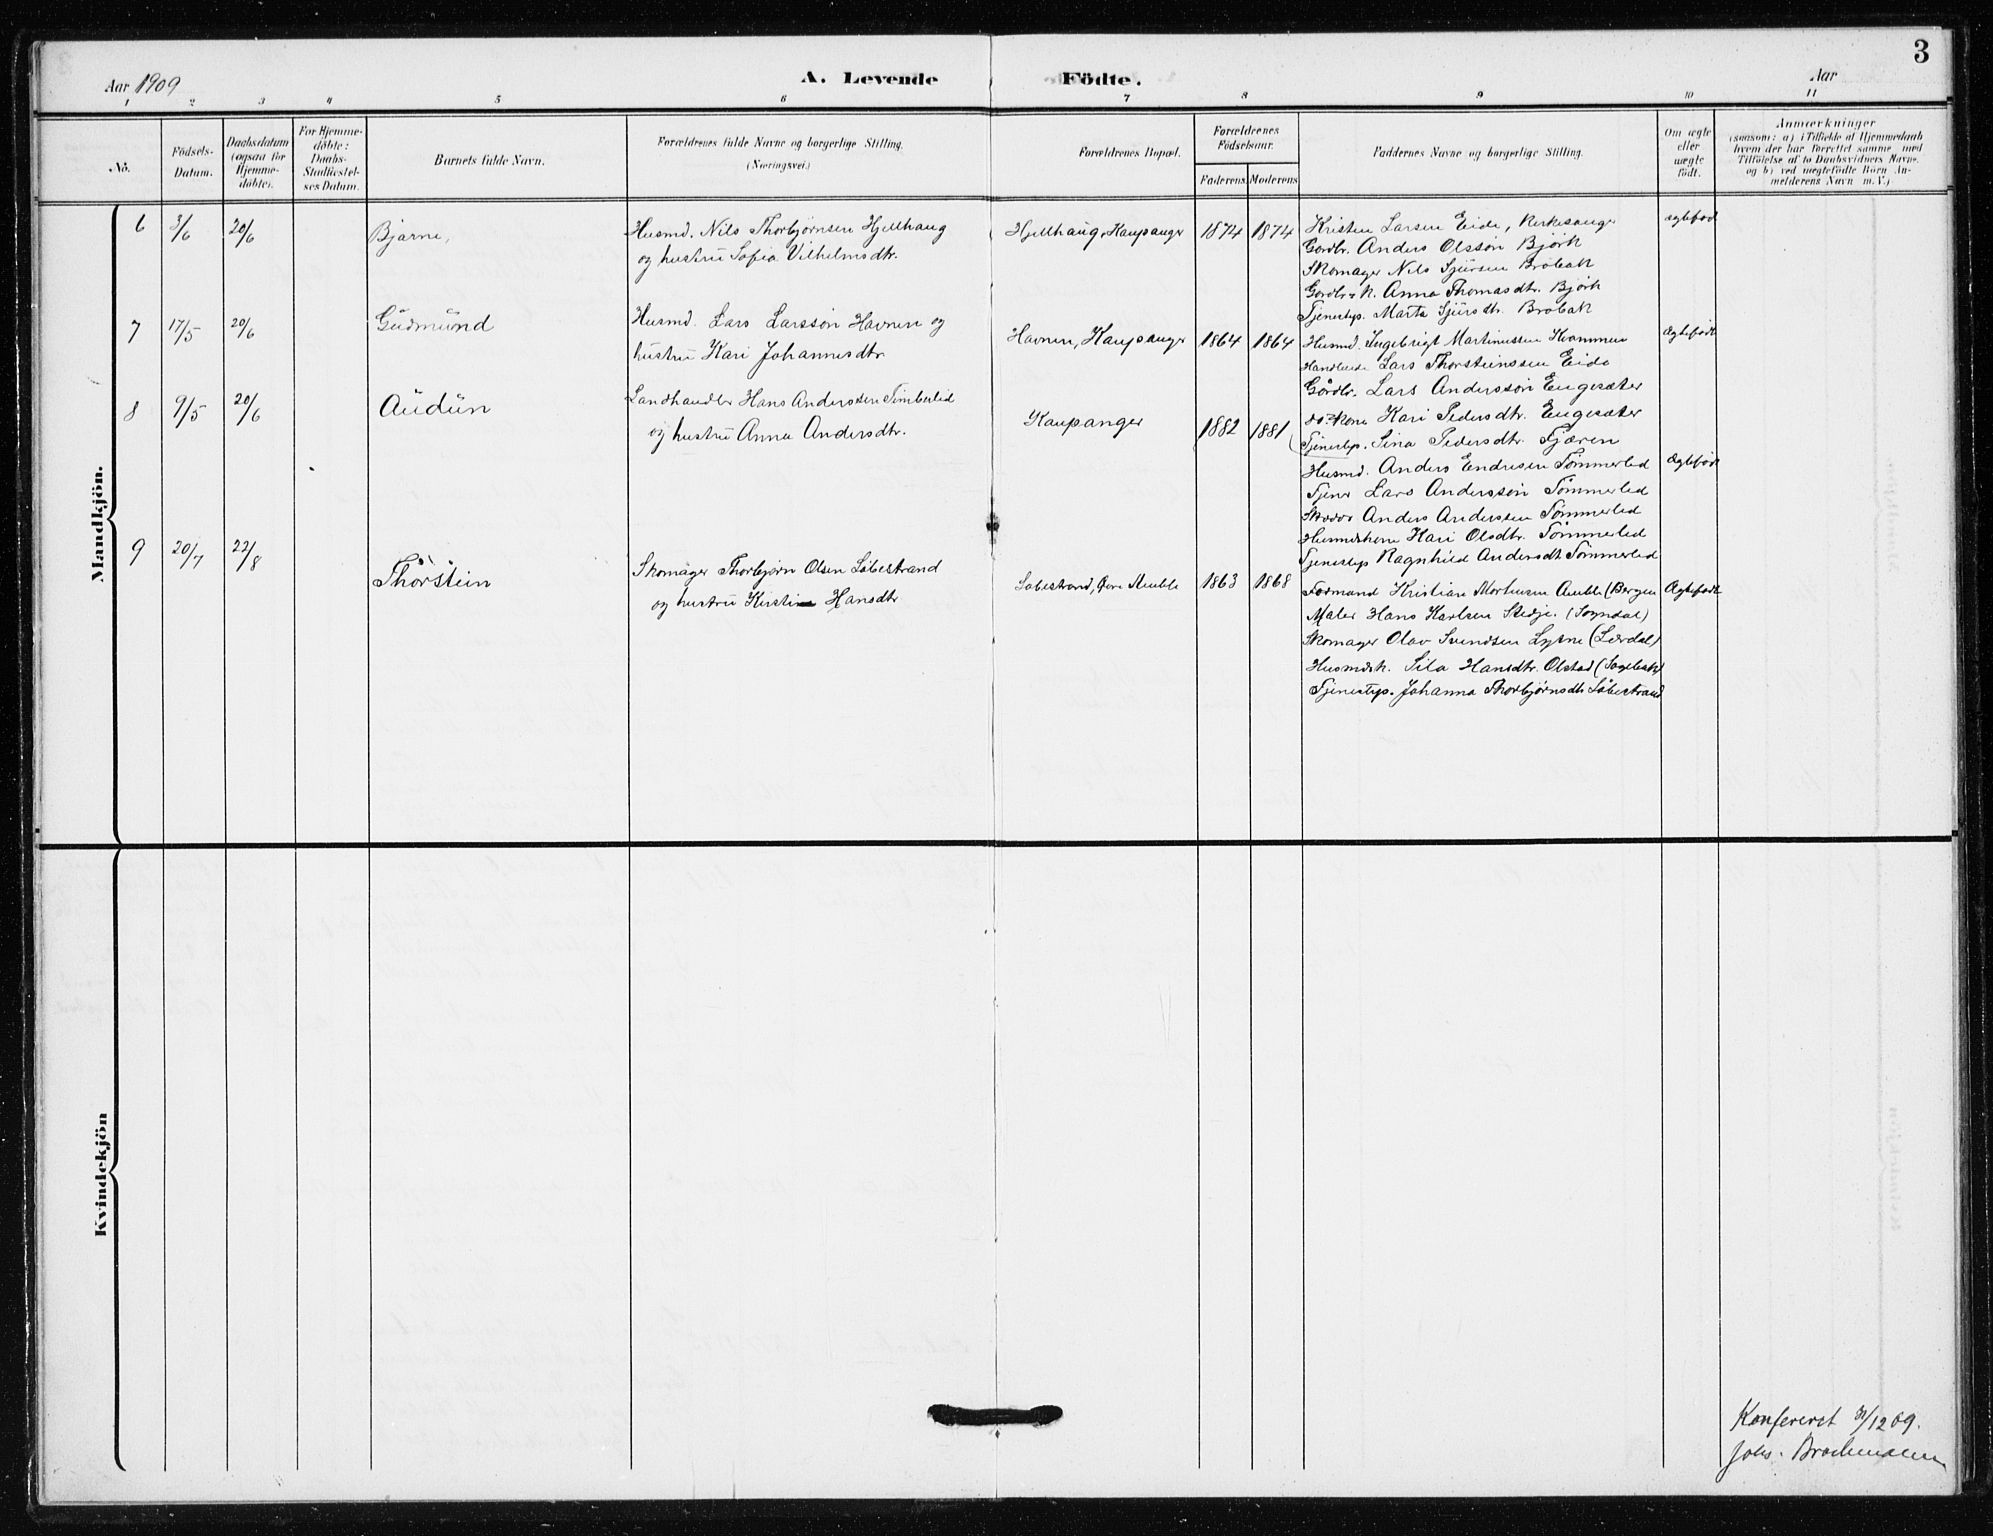 3
Aar 1909
A. Levende Födte.
Aar
1 2 3 4 5 6 7 8 9 10 11
No.
Födsels-
Datum.
Daabsdatum
(ogsaa for
Hjemme-
döbte).
For Hjemme-
döbte:
Daabs-
Stadfæstel-
ses Datum.
Barnets fulde Navn.
Forældrenes fulde Navne og borgerlige Stilling.
(Næringsvei.)
Forældrenes Bopæl.
Forældrenes
Födselsaar.
Faderens. Moderens
Faddernes Navne og borgerlige Stilling.
Om ægte
eller
uægte
födt.
Anmærkninger
(saasom: a) i Tilfælde af Hjemmedaab
hvem der har forrettet samme med
Tilföielse af to Daabsvidners Navne.
og b) ved uægtefödte Börn An-
melderens Navn m. V.)
Mandkjön.
6 3/6 20/6 Bjarne,
Husmd. Nils Thorbjørnsen Hjellhaug
og hustru Sofia Vilhelmsdtr.
Hjellhaug, Kaupanger 1874 1874
Kristen Larsen Eide, Kirkesanger
Gardbr. Anders Olsson Björk
Skomager Nils Sjursen Bråbak
Gardbr.k. Anna Thomasdtr. Björk
Tjenestep. Marta Sjursdtr. Bråbak
ægtefødt
7 17/5 20/6 Gudmund
Husmd. Lars Larsson Havnen og
hustru Kari Johannesdtr.
Havnen, Kaupanger 1864 1864
Husmd. Ingebrigt Martinussen Kvammen
Lars Thorsteinssen Eide
Gårdbr. Lars Anderssøn Engesæter
do. kone Kari Pedersdtr. Engesæter
Tjenestep. Sina Pedersdtr. Fjæren
Ægtefødt
8 9/5 20/6 Audun
Landhandler Hans Anderssen Timberlid
og hustru Anna Andersdtr.
Kaupanger 1882 1881
Husmd. Anders Endresen Tømmerlid
Tjener Lars Anderssøn Tømmerlid
Anders Anderssen Tømmerlid
Husmdskone Kari Olsdtr. Tømmerlid
Tjenestep Ragnhild Andersdt. Tømmerlid
Ægtefødt
9 20/7 22/8 Thorstein
Skomager Thorbjørn Olsen Låbestrand
og hustru Kirstine Hansdtr
Låbestrand, Øvre Amble 1863 1868
Formand Kristian Mortensen Amble (Bergen
Maler Hans Karlsen Stedje. (Sogndal)
Skomager Olav Svendsen Lysne (Lærdal)
Husmdsk. Sila Hansdtr. Olstad
Tjenestep. Johanna Thorbjørnsdtr Låbestrand
Ægtefødt
Kvindekjön
Konfereret 31/12 09.
Johs. Brochmann